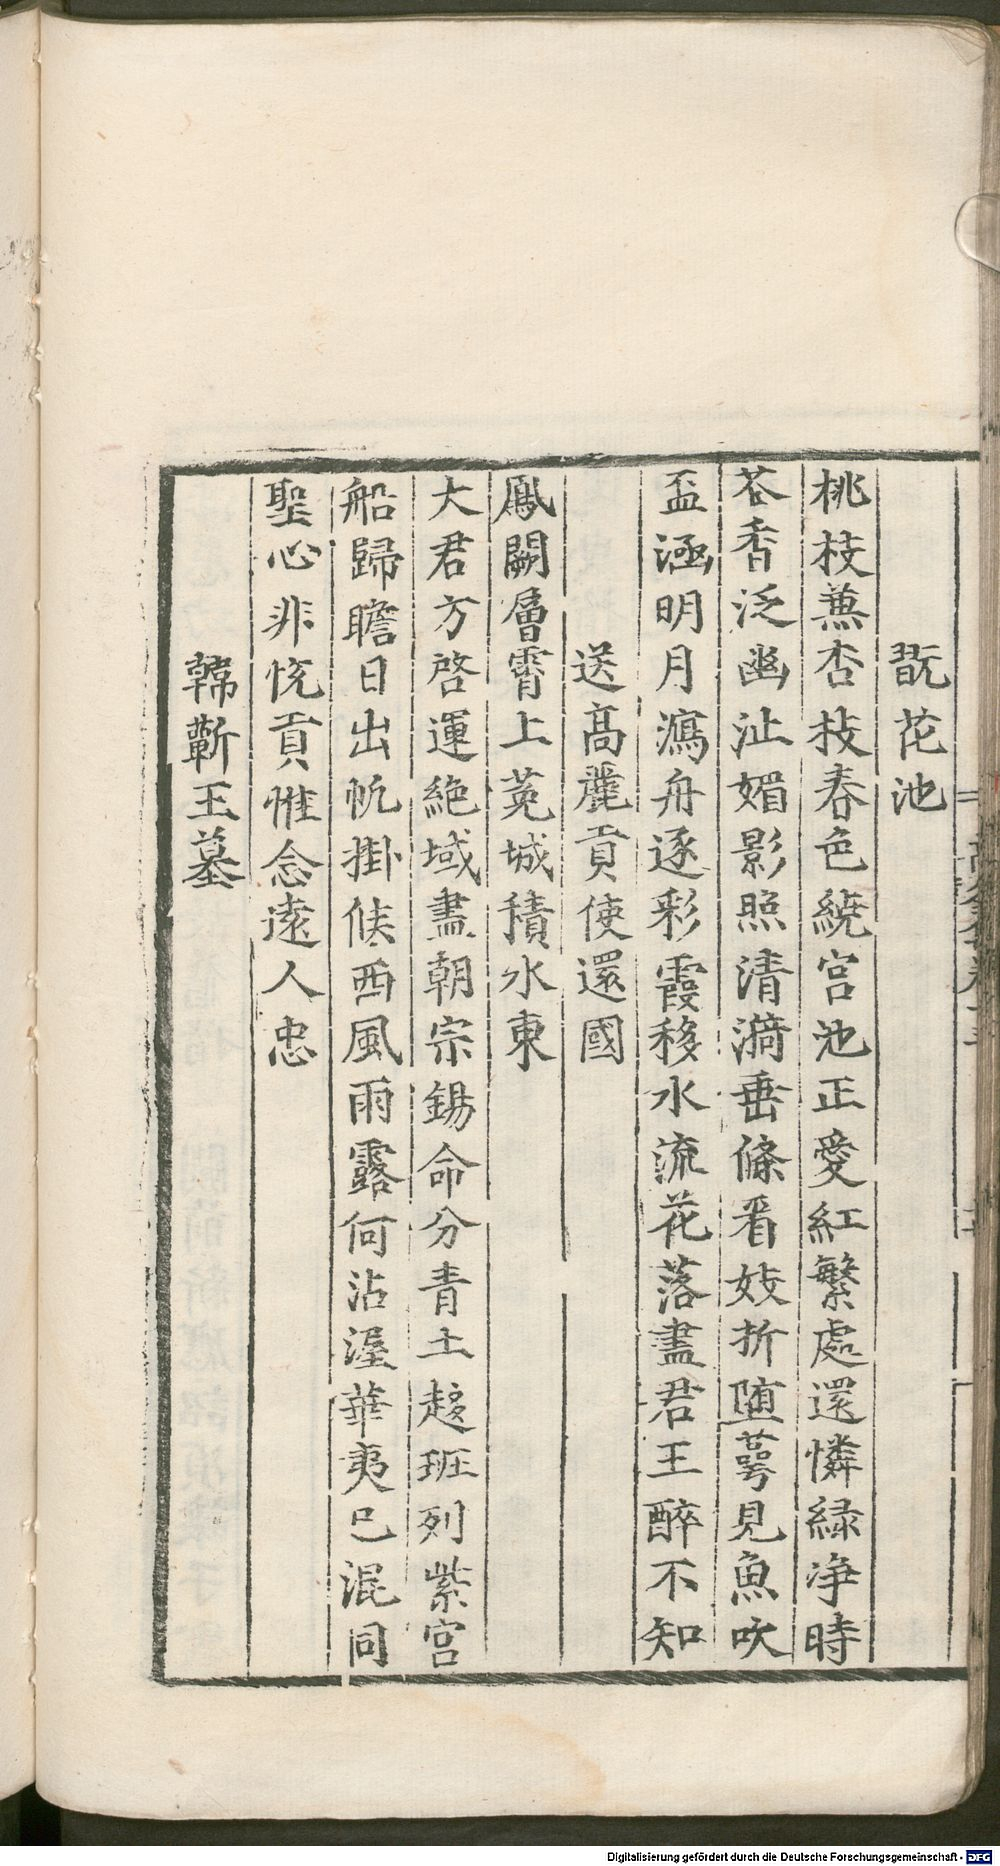 翫花池
桃枝兼杏枝春色繞宮池正愛紅繁處還憐緑净時
苍香泛幽沚媚影照清漪垂條看妓折堕萼見魚吹
盃涵明月瀉舟逐彩霞移水流花落盡君王醉不知
送髙麗貢使還國
鳳闕層霄上菟城積水東
大君方啓運絶域盡朝宗錫命分青土趍班列紫宮
船歸瞻日出帆掛候西風雨露何沾渥華夷已混同
聖心非恱貢惟念遠人忠
韓蘄王墓
Digitalisierung gefördert durch die Deutsche Forschungsgemeinschaft - DFG